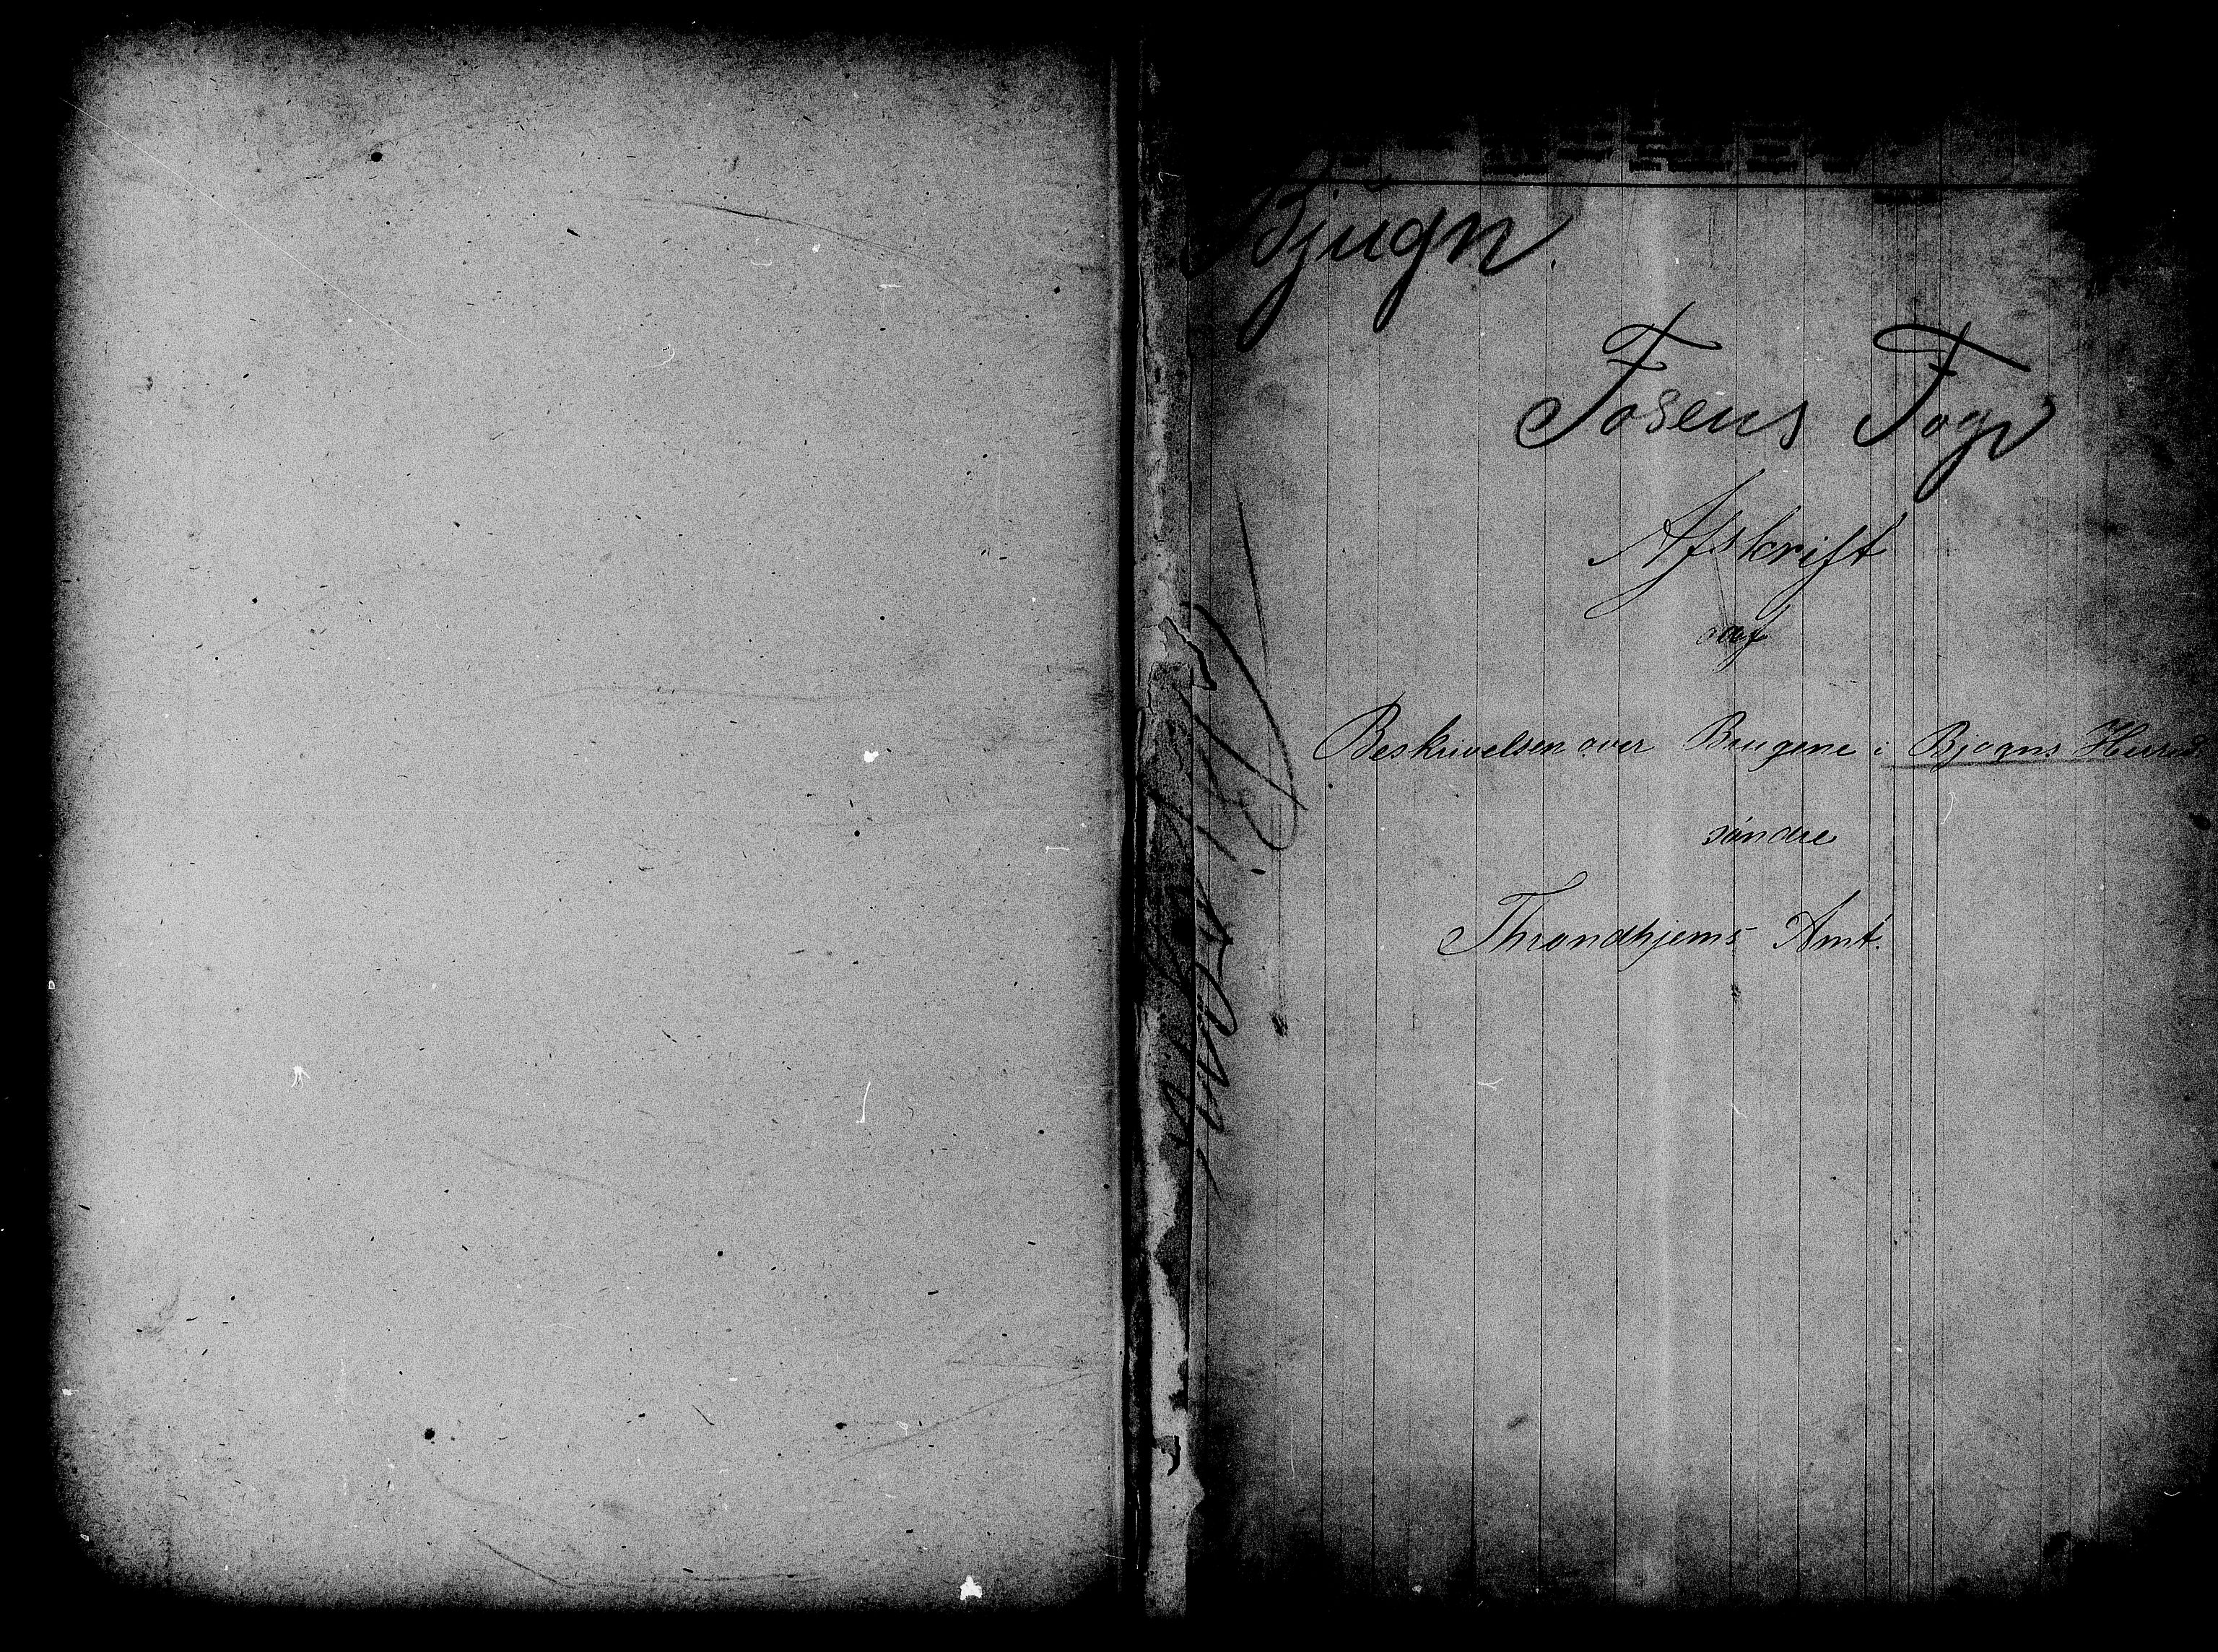 Bjugn.
Fosens Fogd
Afskrift
af
Beskrivelsen over Brugene i Bjogns Herred
søndre
Throndhjems Amt.